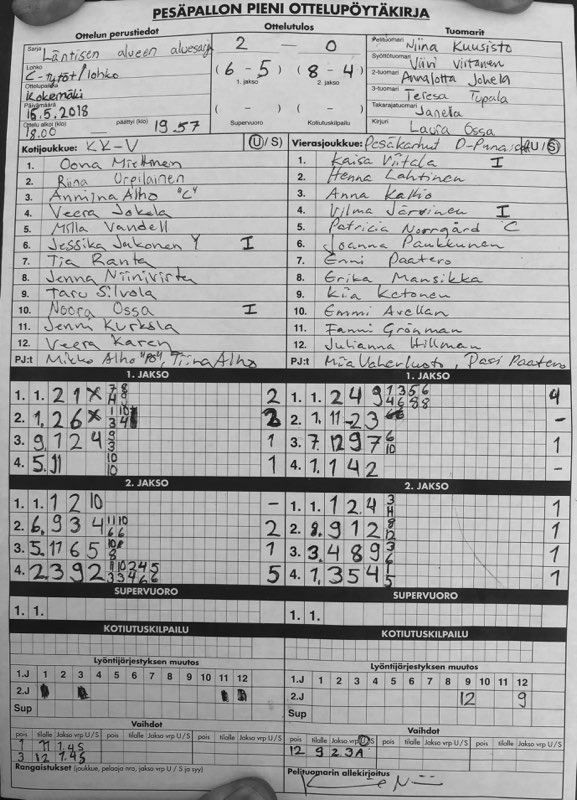 PESÄPALLON PIENI OTTELUPÖYTÄKIRJA
Ottelun perustiedot Ottelutulos Tuomarit
Sarja Läntisen alueen aluesarja
Lohko C-tytöt/lohko
Ottelupaikka Kokemäki
Päivämäärä 16.5.2018
Ottelu alkoi (klo) 18.00 päättyi (klo) 19.57
2 — 0
(6 - 5) (8 - 4)
1. jakso 2. jakso
( - ) ( - )
Supervuoro Kotiutuskilpailu
Pelituomari Niina Kuusisto
Syöttötuomari Viivi Virtanen
2-tuomari Annalotta Jokela
3-tuomari Teresa Tupala
Takarajatuomari Janella
Kirjuri Laura Ossa
Kotijoukkue: KK-V (U / S)
1. Oona Miettinen
2. Riina Urpilainen
3. Anmina Alho "C"
4. Veera Jokela
5. Milla Vandell
6. Jessika Jakonen Y I
7. Tia Ranta
8. Jenna Niinivirta
9. Taru Silvola
10. Noora Ossa I
11. Jenni Kurkola
12. Veera Karen
PJ:t Mikko Alho "PJ", Tiina Alho
Vierasjoukkue: Pesäkarhut D-Punaiset (U / S)
1. Kaisa Viitala I
2. Henna Lahtinen
3. Anna Kallio
4. Vilma Järvinen I
5. Patricia Norrgård C
6. Joanna Pankkunen
7. Enni Paatero
8. Erika Mansikka
9. Kia Ketonen
10. Emmi Avellan
11. Fanni Grönman
12. Julianna Hillman
PJ:t Mia Vaherluoto, Pasi Paatero
1. JAKSO
1. 1. 2 1 X 7 8 4 9 2
2. 1. 2 6 X 1 10 3 4 2
3. 9 1 2 4 8 3 1
4. 5. 11 10 10 1
1. JAKSO
1. 1. 2 4 9 1 3 5 6 4 6 8 8 4
2. 1. 11 - 2 3 -
3. 7. 12 9 7 6 10 1
4. 1. 1 4 2 -
2. JAKSO
1. 1. 1 2 10 -
2. 6. 9 3 4 11 10 6 6 2
3. 5. 11 6 5 10 8 8 1
4. 2. 3 9 2 11 10 2 4 5 3 3 4 6 6 5
2. JAKSO
1. 1. 1 2 4 3 4 1
2. 8. 9 1 2 8 12 1
3. 3. 4 8 9 3 6 1
4. 1. 3 5 4 1 5 1
SUPERVUORO
1. 1.
SUPERVUORO
1. 1.
KOTIUTUSKILPAILU
KOTIUTUSKILPAILU
Lyöntijärjestyksen muutos
1.J 1 2 3 4 5 6 7 8 9 10 11 12
2.J
Sup
Lyöntijärjestyksen muutos
1.J 1 2 3 4 5 6 7 8 9 10 11 12
2.J 12 9
Sup
Vaihdot
pois tilalle Jakso vrp U / S pois tilalle Jakso vrp U / S pois tilalle Jakso vrp U / S
1 11 1.4S
3 12 1.4S
Rangaistukset (joukkue, pelaaja nro, jakso vrp U / S ja syy)
Vaihdot
pois tilalle Jakso vrp U / S pois tilalle Jakso vrp U / S pois tilalle Jakso vrp U / S
12 9 2.3A
Pelituomarin allekirjoitus